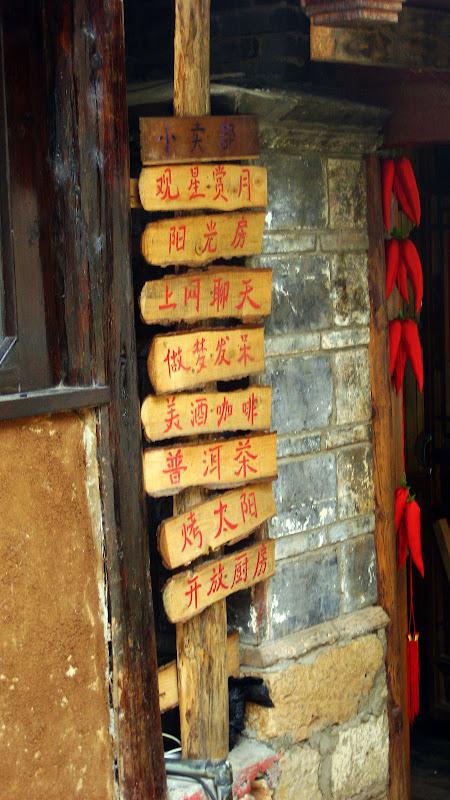 小卖部
观星赏月
阳光房
上网聊天
做梦发呆
美酒咖啡
普洱茶
烤太阳
开放厨房